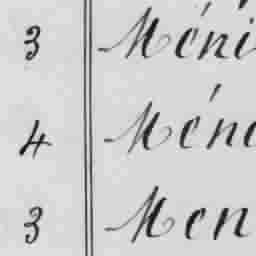 3 Méni
4 Méne
3 Men